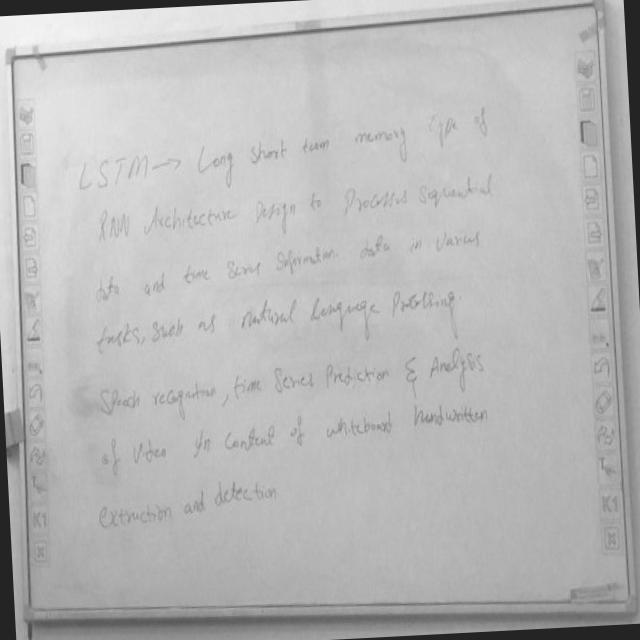 LSTM → Long short term memory Type of
RNN Architecture Design to Process Sequential
data and time Series Information data in various
tasks, such as natural language Processing.
Speech recognition, time Series Prediction & Analysis
of Video In content of whiteboard handwritten
extraction and detection